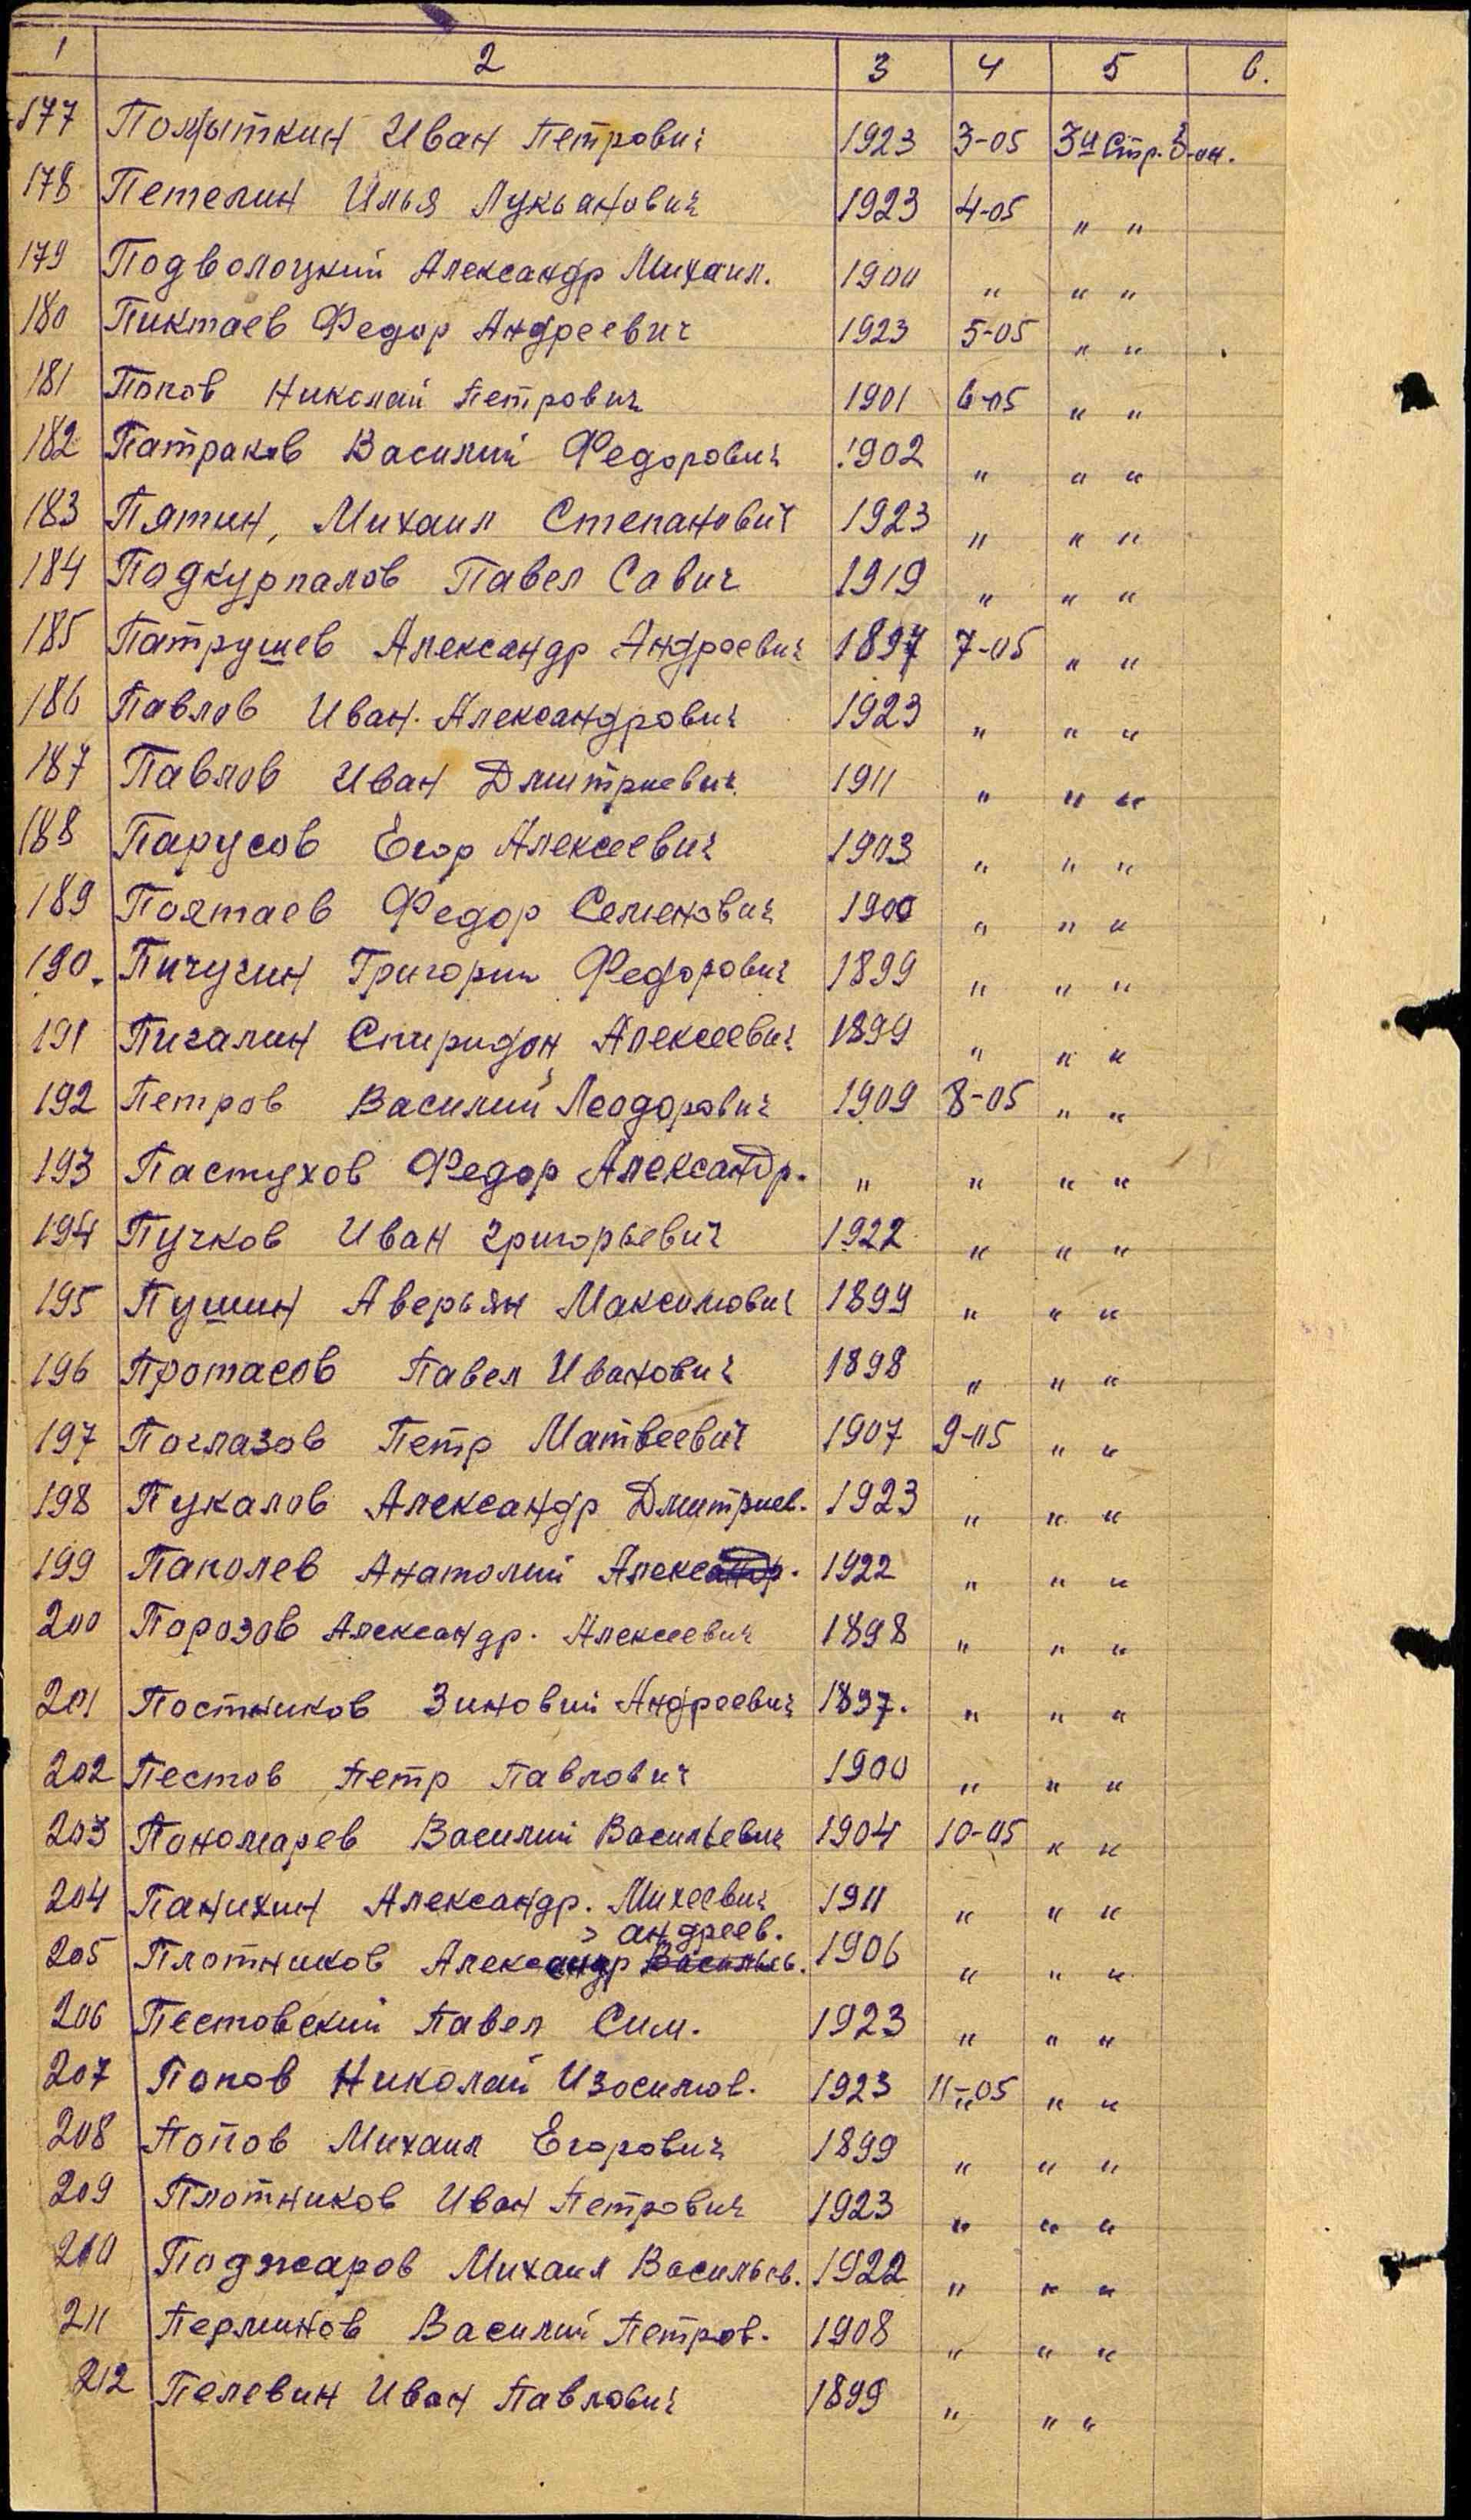 1 2 3 4 5 6.
177 Помыткин Иван Петрович 1923 3-05 3й Стр. б-он.
178 Петелин Илья Лукьянович 1923 4-05 " "
179 Подволоцкий Александр Михаил. 1900 " " "
180 Пиктаев Федор Андреевич 1923 5-05 " "
181 Попов Николай Петрович 1901 6-05 " "
182 Патраков Василий Федорович 1902 " " "
183 Пятин, Михаил Степанович 1923 " " "
184 Подкурпалов Павел Савич 1919 " " "
185 Патрушев Александр Андреевич 1897 7-05 " "
186 Павлов Иван. Александрович 1923 " " "
187 Павлов Иван Дмитриевич 1911 " " "
188 Парусов Егор Алексеевич 1903 " " "
189 Поятаев Федор Семенович 1900 " " "
190. Пичугин Григорий Федорович 1899 " " "
191 Пигалин Спиридон Алексеевич 1899 " " "
192 Петров Василий Леодорович 1909 8-05 " "
193 Пастухов Федор Александр. " " " "
194 Пучков Иван Григорьевич 1922 " " "
195 Пушин Аверьян Максимович 1899 " " "
196 Протасов Павел Иванович 1898 " " "
197 Поглазов Петр Матвеевич 1907 9-05 " "
198 Пукалов Александр Дмитриев. 1923 " " "
199 Паполев Анатолий Александр. 1922 " " "
200 Порозов Александр. Алексеевич 1898 " " "
201 Постников Зиновий Андреевич 1897. " " "
202 Пестов Петр Павлович 1900 " " "
203 Пономарев Василий Васильевич 1904 10-05 " "
204 Панихин Александр. Михеевич 1911 " " "
андреев.
205 Плотников Александр Васильев. 1906 " " "
206 Пестовский Павел Сим. 1923 " " "
207 Попов Николай Изосимов. 1923 11-05 " "
208 Попов Михаил Егорович 1899 " " "
209 Плотников Иван Петрович 1923 " " "
210 Поджаров Михаил Васильев. 1922 " " "
211 Перминов Василий Петров. 1908 " " "
212 Пелевин Иван Павлович 1899 " " "